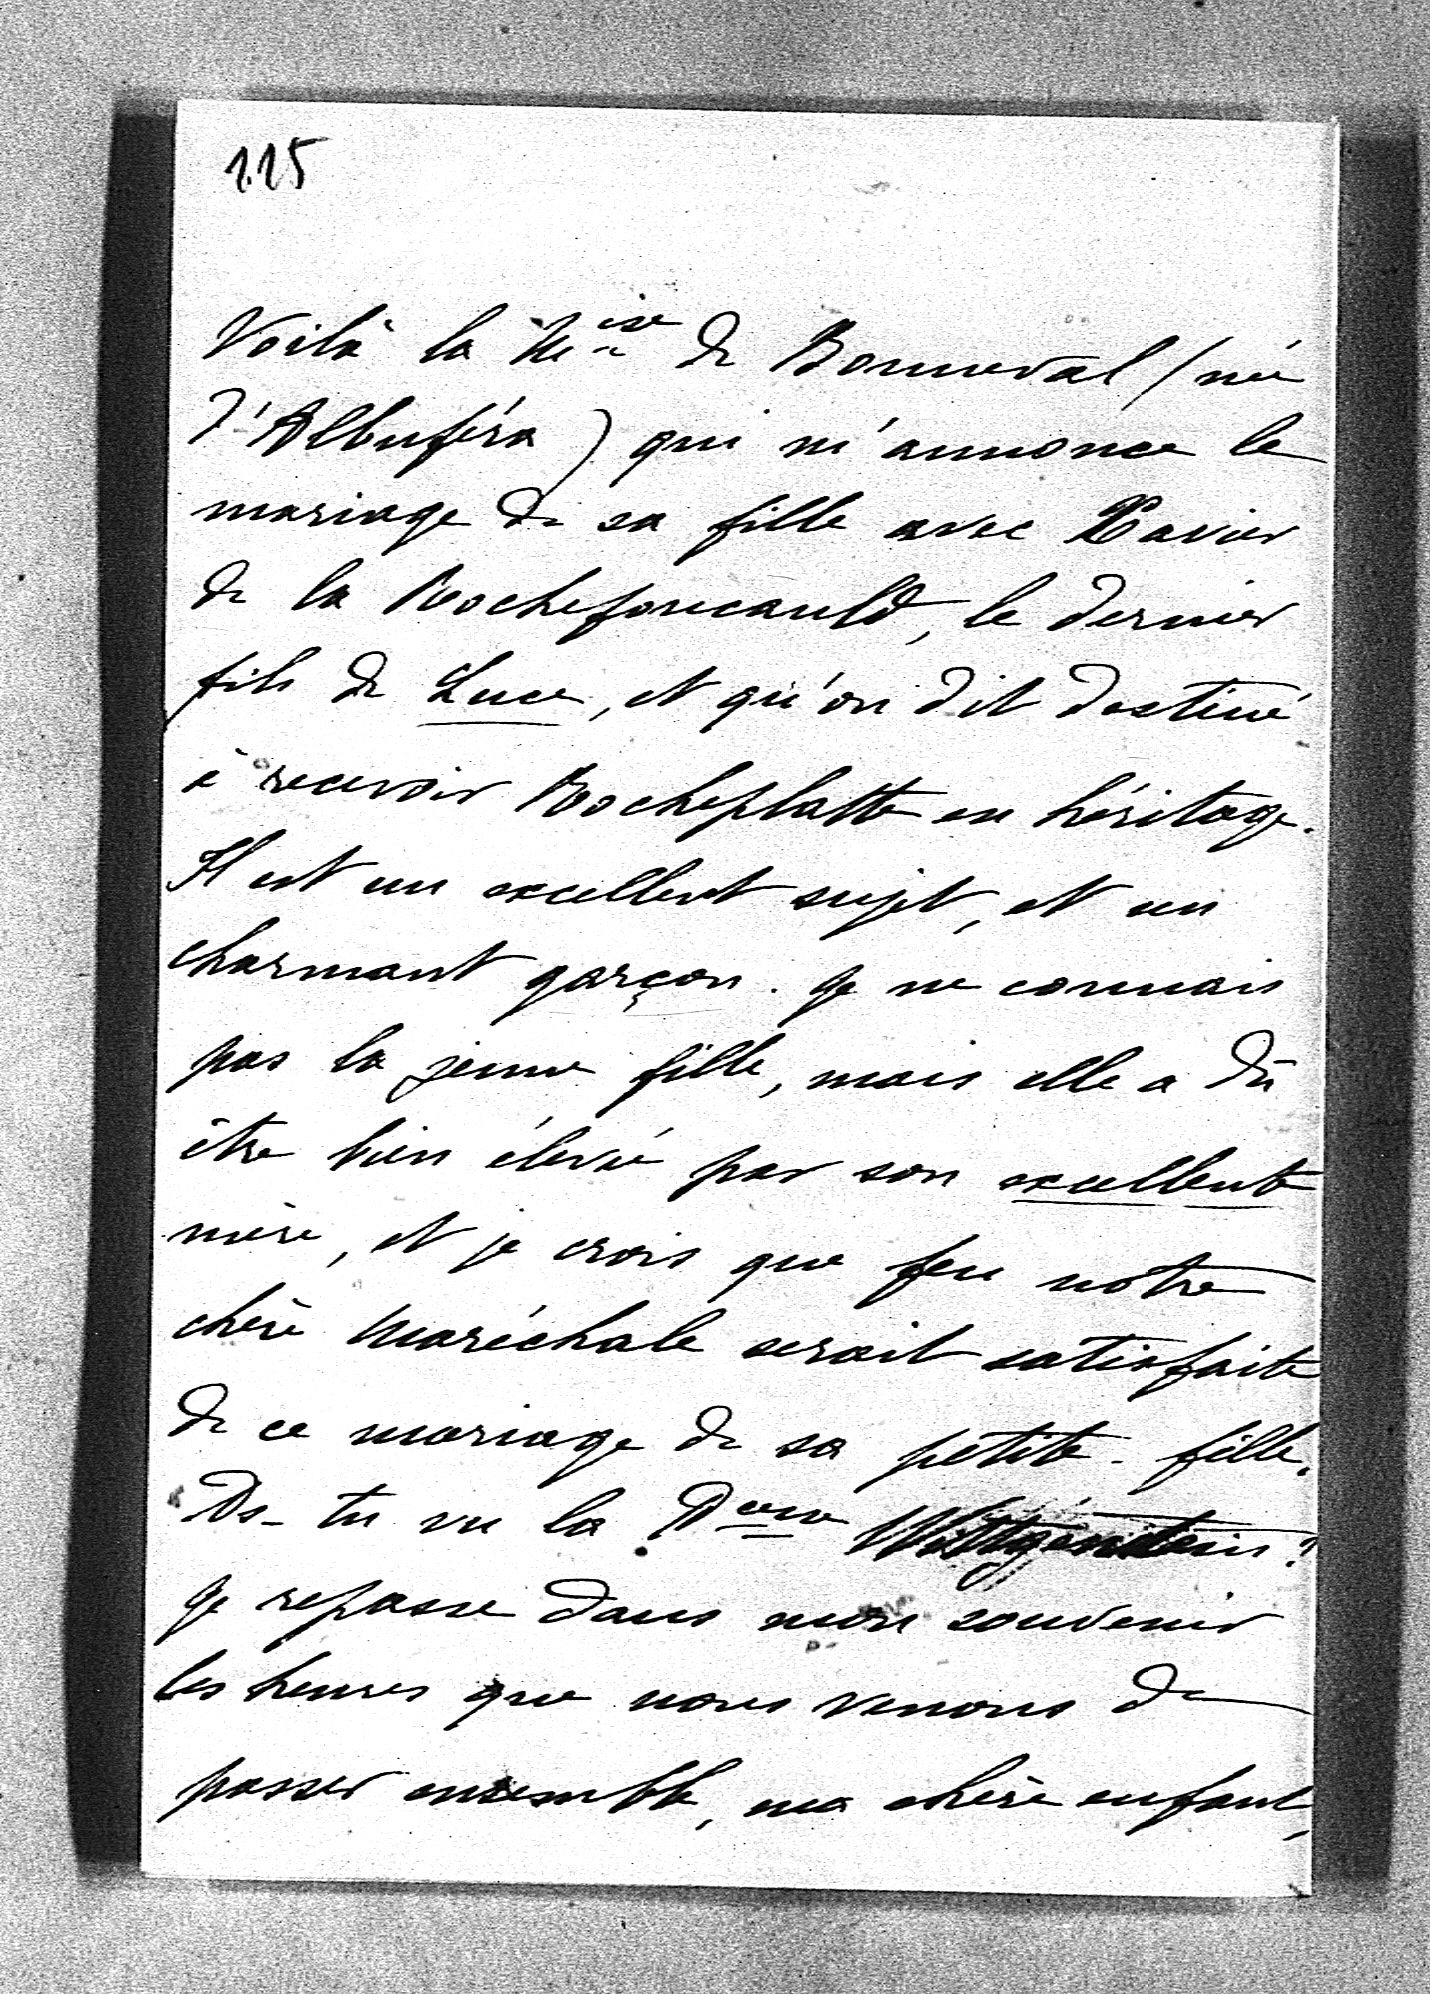 115
Voilà la Mise de Bonneval (née
d'Albuféra) qui m'annonce le
mariage de sa fille avec Xavier
de la Rochefoucauld, le dernier
fils de Luce, et qu'on dit destiné
à recevoir Rocheplatte en héritage.
Il est un excellent sujet, et un
charmant garçon. Je ne connais
pas la jeune fille, mais elle a dû
être bien élevée par son excellente
mère, et je crois que feu notre
chère Maréchale serait satisfaite
de ce mariage de sa petite-fille.
As-tu vu la Pcesse Wittgenstein?
Je repasse dans mon souvenir
les heures que nous venons de
passer ensemble, ma chère enfant,